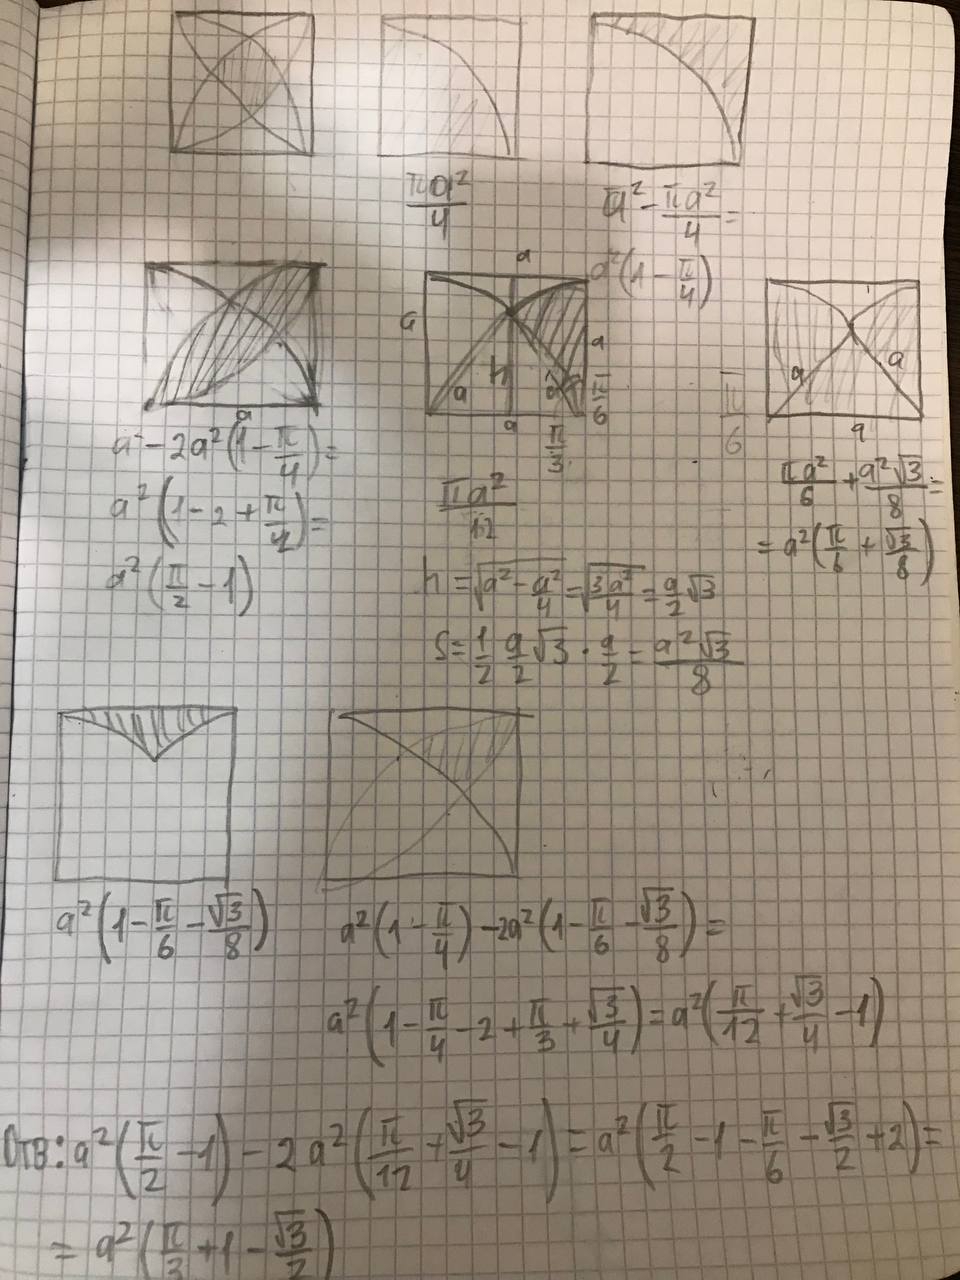 πa²/4
a² - πa²/4 =
a²(1 - π/4)
a
a
a
a
a
h
a
π/6
π/3
π/6
a
a
a
a
a² - 2a²(1 - π/4) =
a²(1 - 2 + π/2) =
a²(π/2 - 1)
πa²/12
h = √(a² - a²/4) = √(3a²/4) = a/2 √3
S = 1/2 a/2 √3 · a/2 = a²√3/8
πa²/6 + a²√3/8 =
= a²(π/6 + √3/8)
a²(1 - π/6 - √3/8)
a²(1 - π/4) - 2a²(1 - π/6 - √3/8) =
a²(1 - π/4 - 2 + π/3 + √3/4) = a²(π/12 + √3/4 - 1)
Отв: a²(π/2 - 1) - 2a²(π/12 + √3/4 - 1) = a²(π/2 - 1 - π/6 - √3/2 + 2) =
= a²(π/3 + 1 - √3/2)